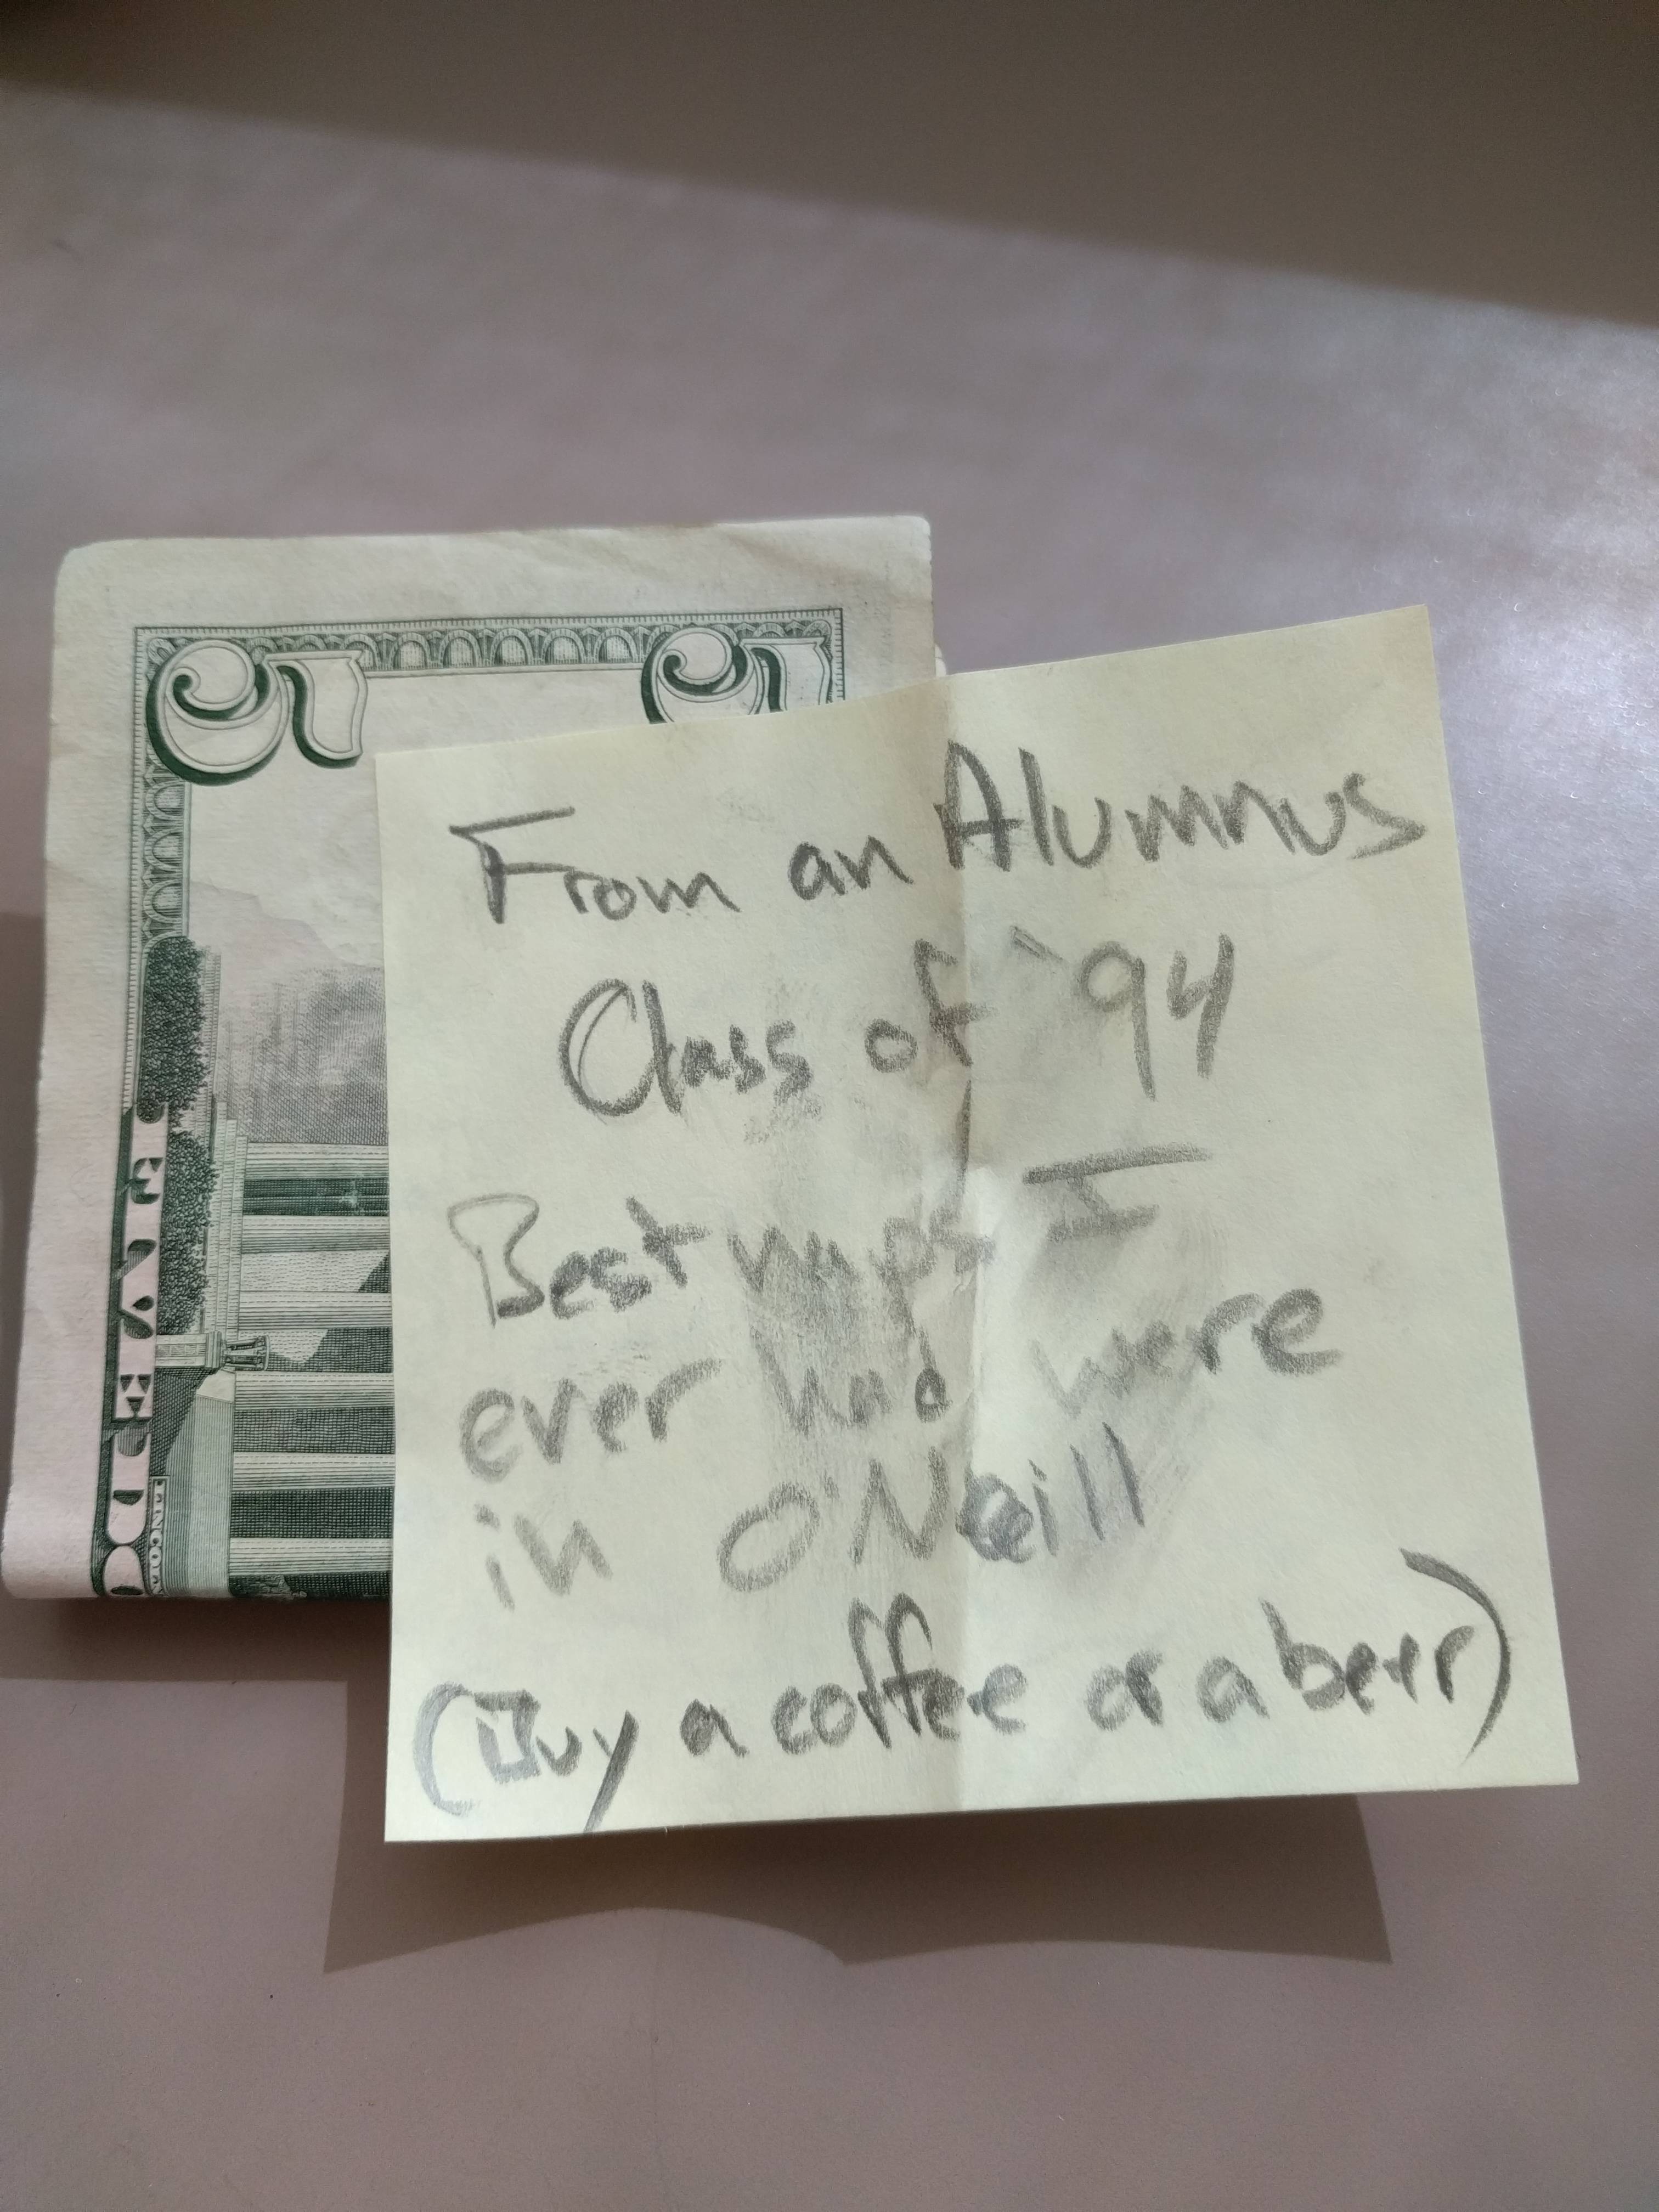 5 5
FIVE DO
LINCOLN
From an Alumnus
Class of `94
Best naps I
ever had were
in O'Neill
(Buy a coffee or a beer)